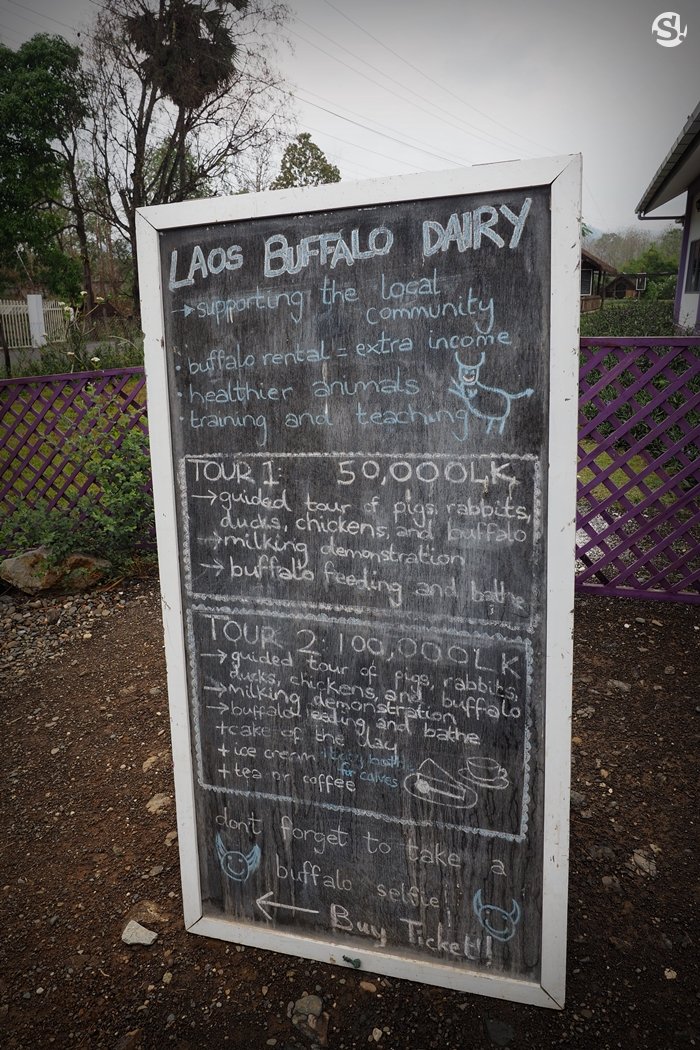 S!
LAOS BUFFALO DAIRY
→ supporting the local
community
• buffalo rental = extra income
• healthier animals
• training and teaching
TOUR 1: 50,000LK
→ guided tour of pigs, rabbits,
ducks, chickens, and buffalo
→ milking demonstration
→ buffalo feeding and bathe
TOUR 2: 100,000LK
→ guided tour of pigs, rabbits,
ducks, chickens, and buffalo
→ milking demonstration
→ buffalo and bathe
+ cake of the day
+ ice cream
for calves
+ tea or coffee
dont forget to take a
buffalo selfie!
← Buy Ticket!!